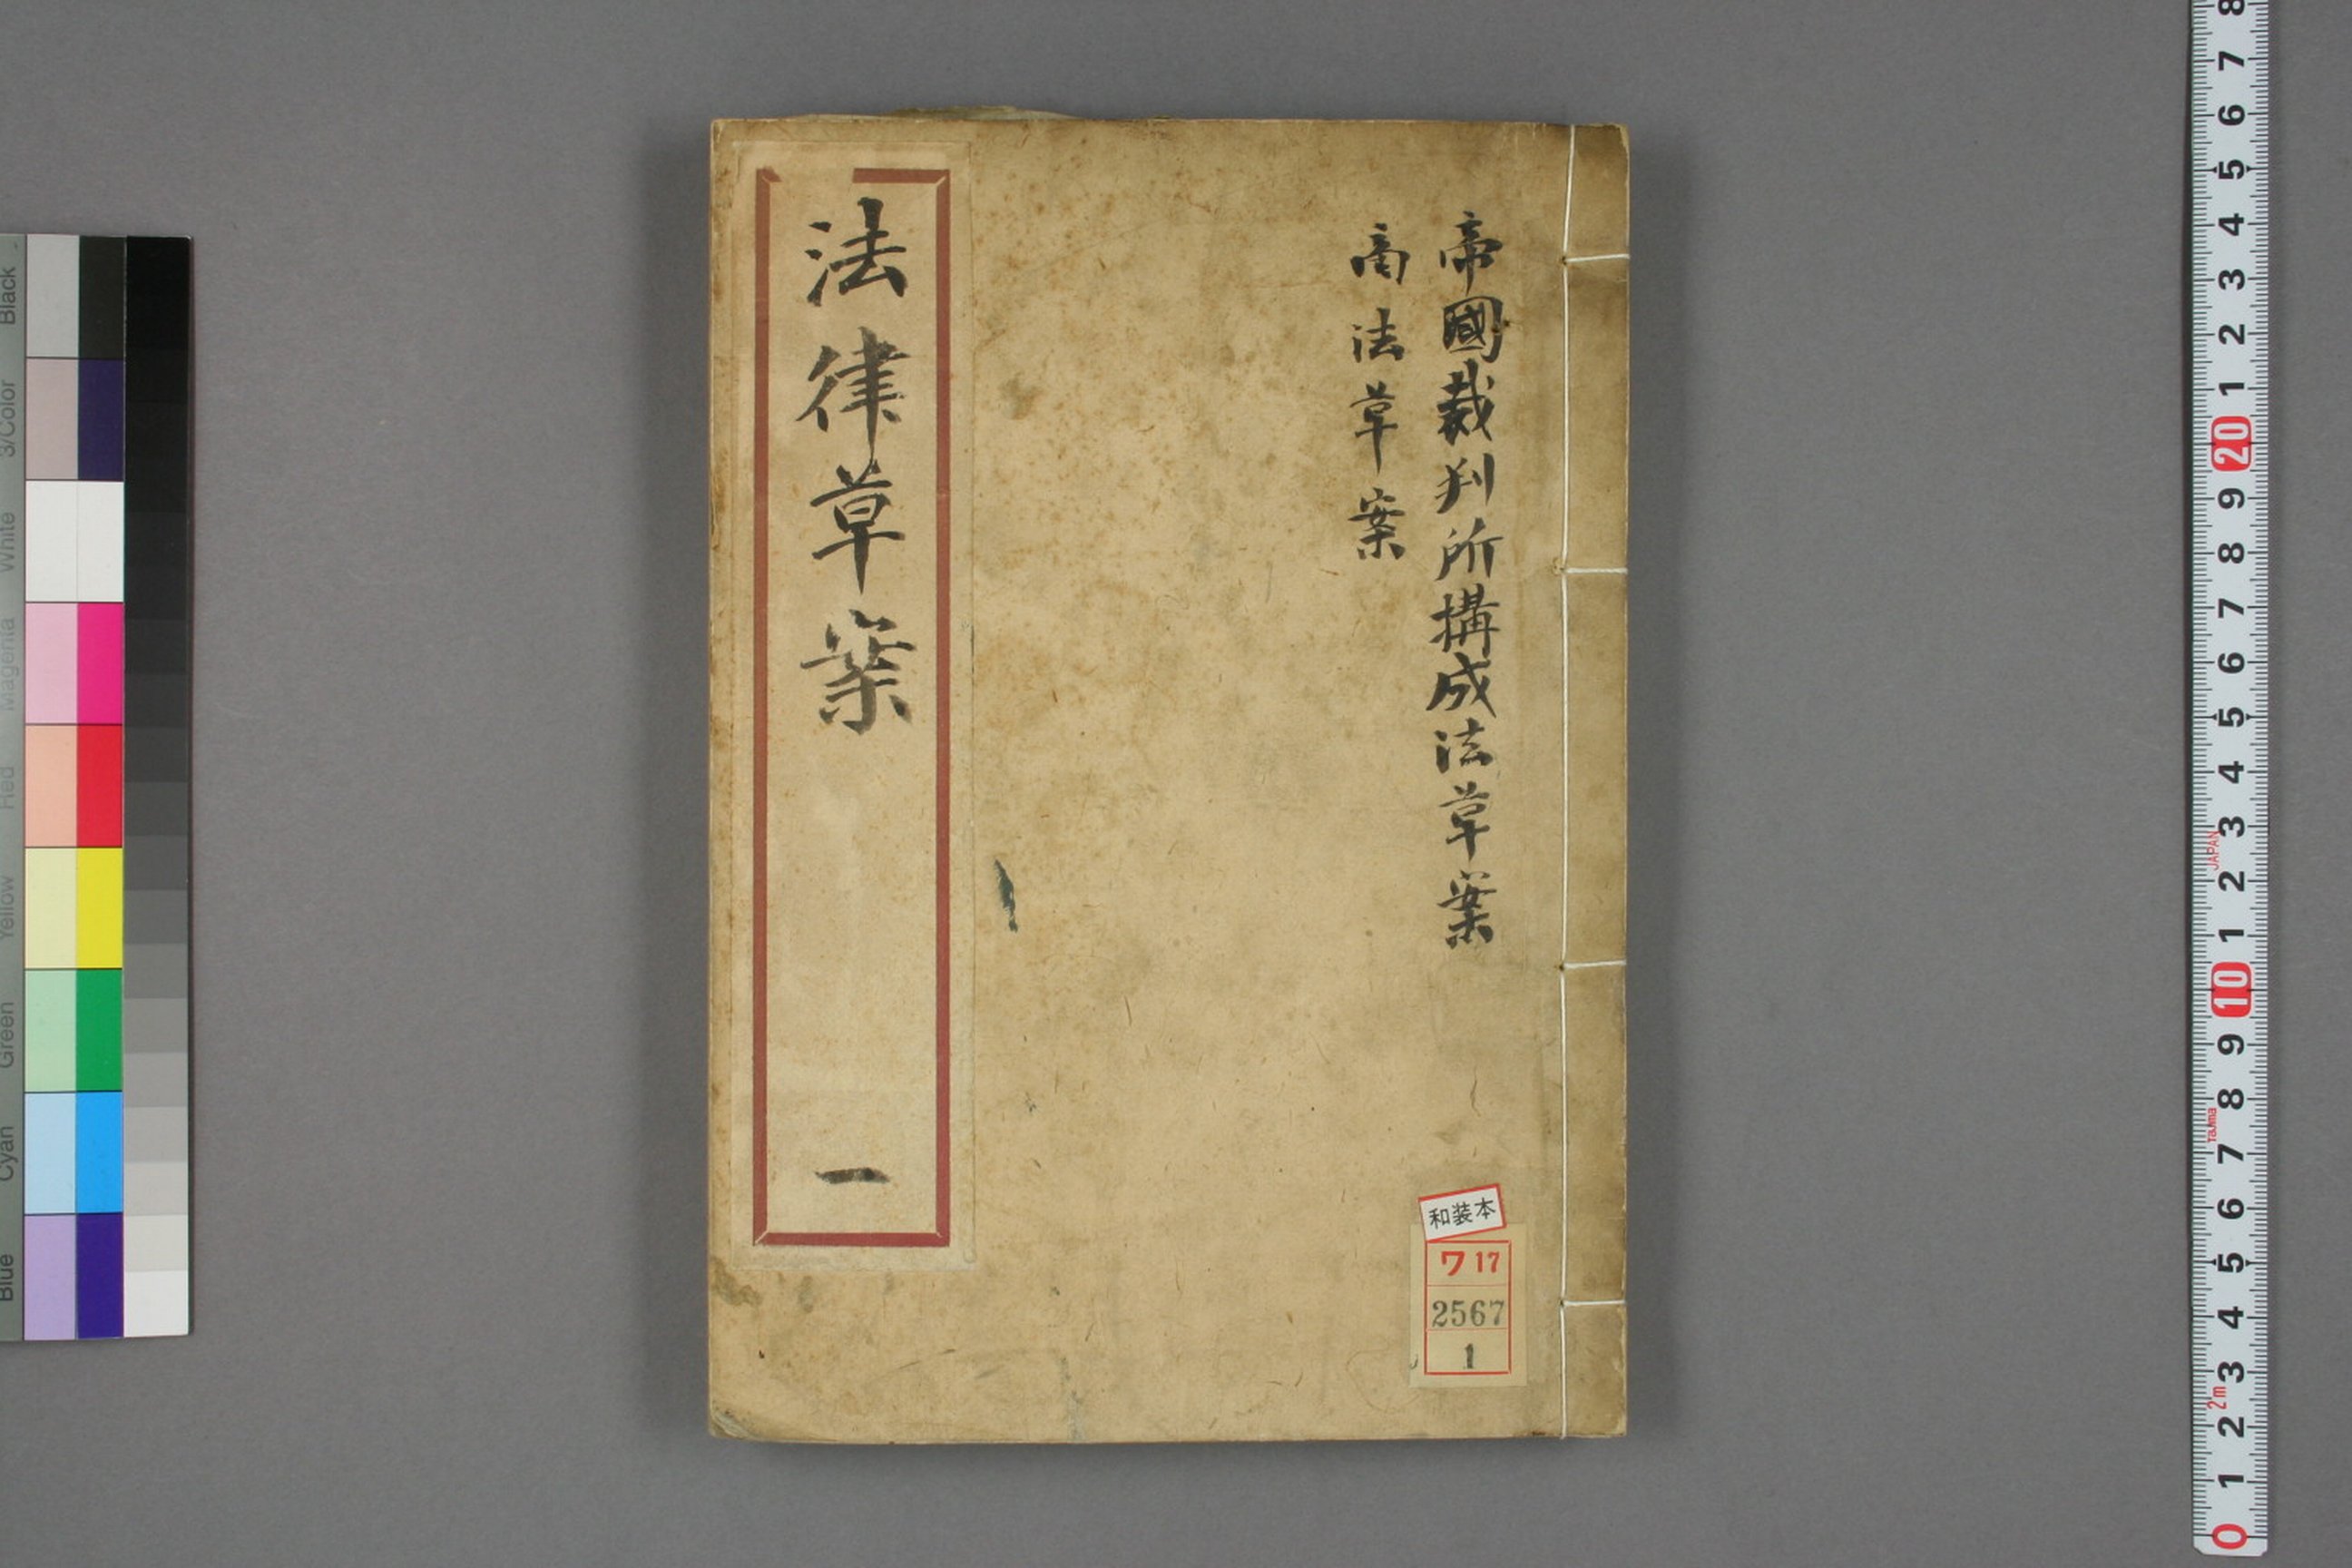 帝國裁判所構成法草案
商法草案
法律草案
一
和装本
ワ 17
2567
1
Black
3/Color
White
Magenta
Red
Yellow
Green
Cyan
Blue
8
7
6
5
4
3
2
1
20
9
8
7
6
5
4
3
JAPAN
2
1
10
9
8
Tajima
7
6
5
4
3
2m
2
1
0